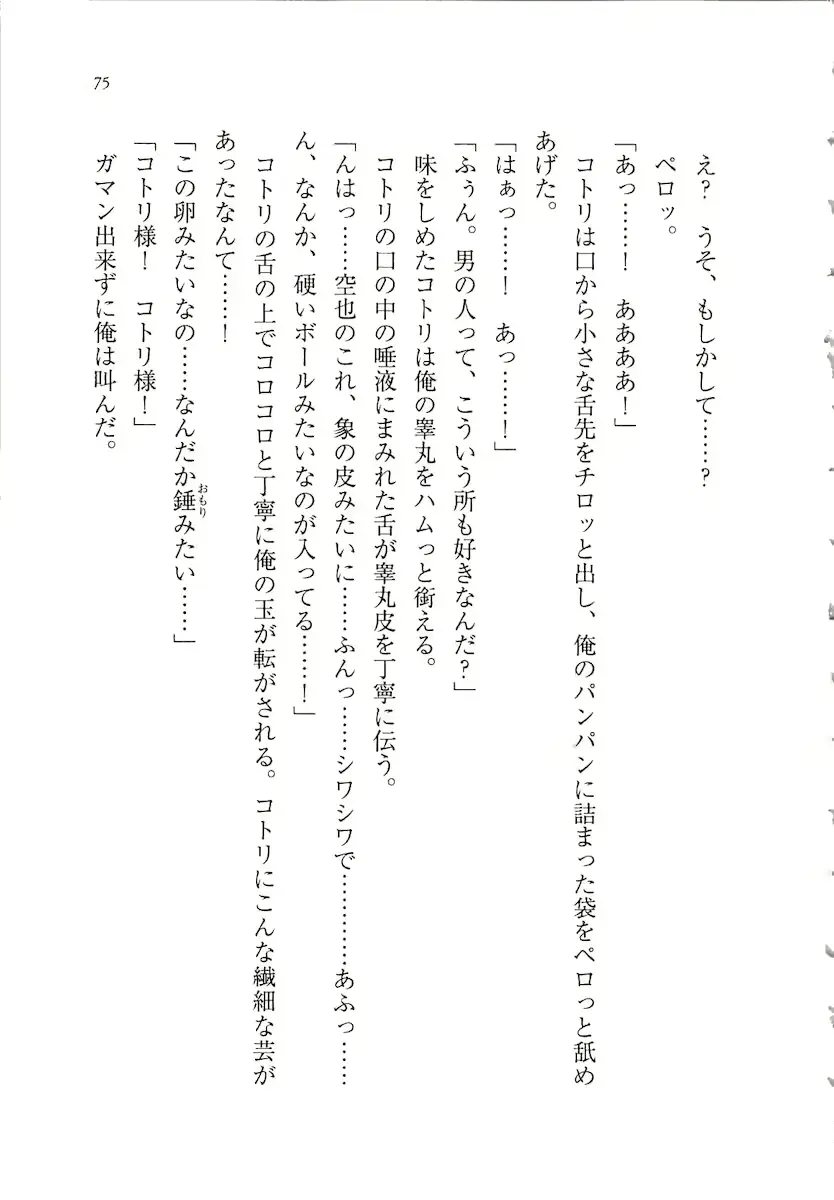 え？　うそ、もしかして……？
ペロッ。
「あっ……！　ああああ！」
コトリは口から小さな舌先をチロッと出し、俺のパンパンに詰まった袋をペロっと舐め
あげた。
「はぁっ……！　あっ……！」
「ふぅん。男の人って、こういう所も好きなんだ？」
味をしめたコトリは俺の睾丸をハムっと銜える。
コトリの口の中の唾液にまみれた舌が睾丸皮を丁寧に伝う。
「んはっ……空也のこれ、象の皮みたいに……ふんっ……シワシワで…………あふっ……
ん、なんか、硬いボールみたいなのが入ってる……！」
コトリの舌の上でコロコロと丁寧に俺の玉が転がされる。コトリにこんな繊細な芸が
あったなんて……！
「この卵みたいなの……なんだか錘おもりみたい……」
「コトリ様！　コトリ様！」
ガマン出来ずに俺は叫んだ。
75